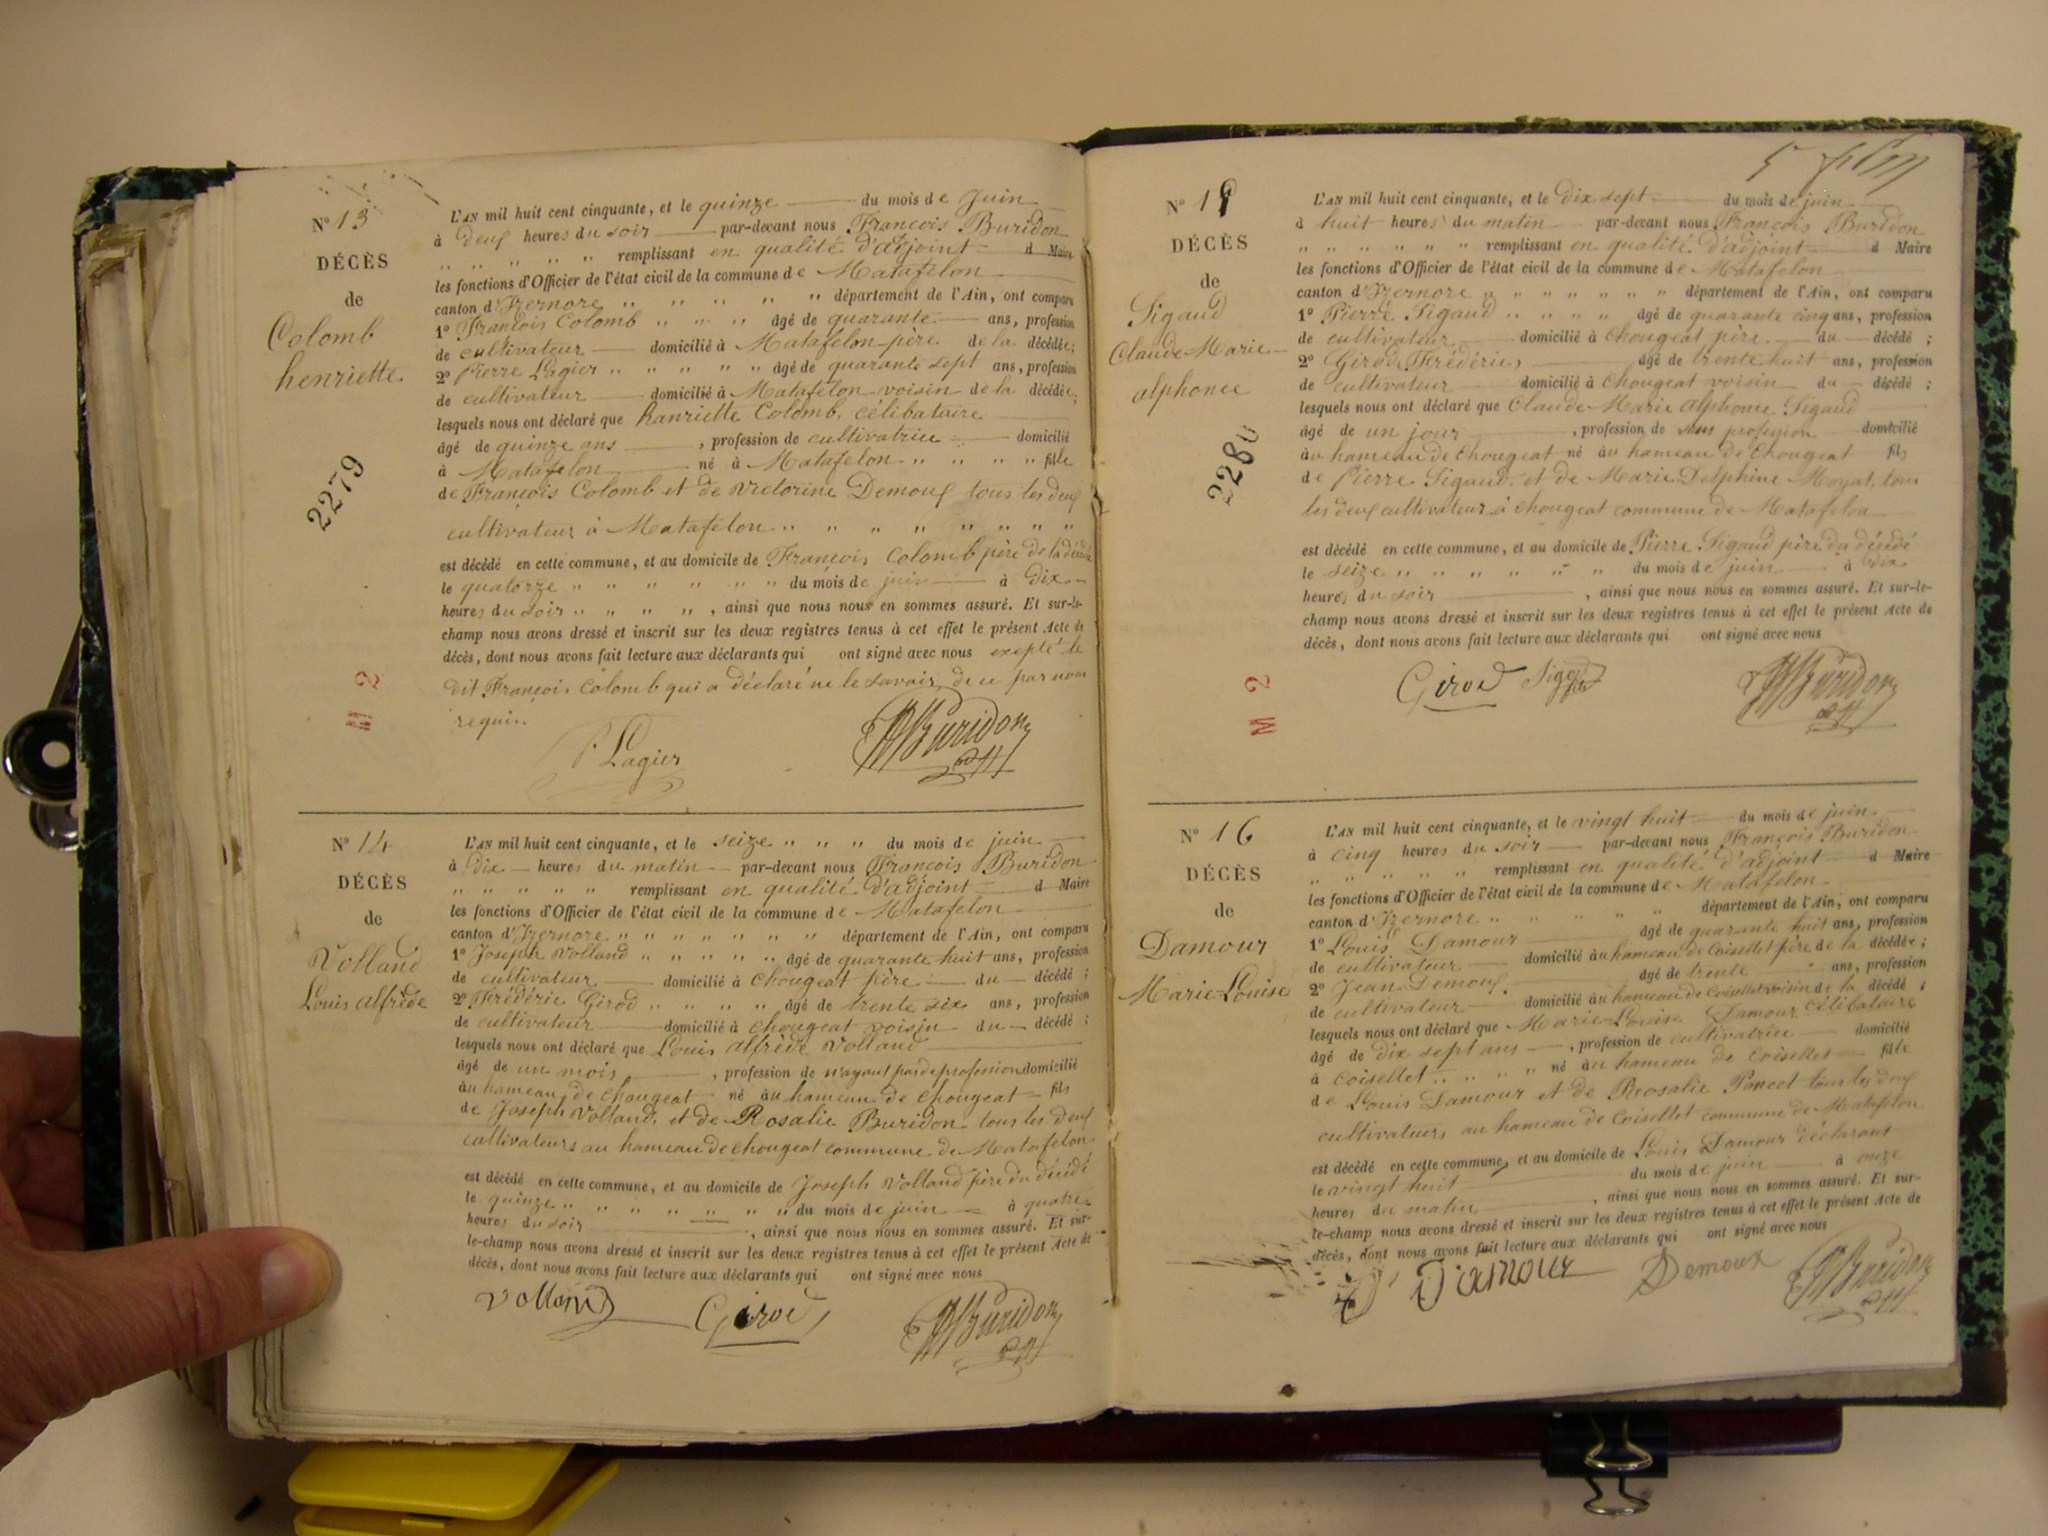 N° 13
DÉCÈS
de
Colomb
henriette
2279
M 2
L'AN mil huit cent cinquante, et le quinze du mois de Juin
à deux heures du soir par-devant nous François Buridon
" " " " " remplissant en qualité d'adjoint d Maire
les fonctions d'Officier de l'état civil de la commune de Matafelon
canton d'Izernore " " " " " département de l'Ain, ont comparu
1° François Colomb " " " âgé de quarante ans, profession
de cultivateur domicilié à Matafelon père de la décédée;
2° Pierre Lagier " " " " " âgé de quarante sept ans, profession
de cultivateur domicilié à Matafelon voisin de la décédée;
lesquels nous ont déclaré que hanriette Colomb, célibataire
âgé de quinze ans , profession de cultivatrice domicilié
à Matafelon né à Matafelon " " " " fille
de François Colomb et de Victorine Demoux tous les deux
cultivateur à Matafelon " " " " " " " "
est décédé en cette commune, et au domicile de François Colomb père de la décédé
le quatorze " " " " " " " du mois de juin à dix
heures du soir " " " " , ainsi que nous nous en sommes assuré. Et sur-le-
champ nous avons dressé et inscrit sur les deux registres tenus à cet effet le présent Acte de
décès, dont nous avons fait lecture aux déclarants qui ont signé avec nous exepté le
dit François Colomb qui a déclaré ne le savoir de ce par nous
requis.
P. Lagier
Buridon
N° 14
DÉCÈS
de
Volland
Louis alfrède
L'AN mil huit cent cinquante, et le seize " " " du mois de juin
à dix heures du matin par-devant nous François Buridon
" " " " " remplissant en qualité d'adjoint d Maire
les fonctions d'Officier de l'état civil de la commune de Matafelon
canton d'Izernore " " " " " " " département de l'Ain, ont comparu
1° Joseph Volland " " " " " âgé de quarante huit ans, profession
de cultivateur domicilié à Chougeat père du décédé ;
2° Frédéric Girod " " " " " âgé de trente six ans, profession
de cultivateur domicilié à chougeat voisin du décédé ;
lesquels nous ont déclaré que Louis alfrède Volland
âgé de un mois , profession de n'ayant pas de profession domicilié
au hameau de chougeat né au hameau de chougeat fils
de Joseph Volland, et de Rosalie Buridon tous les deux
cultivateurs au hameau de chougeat commune de Matafelon
est décédé en cette commune, et au domicile de Joseph Volland père du décédé
le quinze " " " " " " " du mois de juin à quatre
heures du soir , ainsi que nous nous en sommes assuré. Et sur-
le-champ nous avons dressé et inscrit sur les deux registres tenus à cet effet le présent Acte de
décès, dont nous avons fait lecture aux déclarants qui ont signé avec nous
Volland Girod Buridon
N° 15
DÉCÈS
de
Sigaud
Claude Marie
alphonce
2280
M 2
L'AN mil huit cent cinquante, et le dix sept du mois de juin
à huit heures du matin par-devant nous François Buridon
" " " " " " remplissant en qualité d'adjoint d Maire
les fonctions d'Officier de l'état civil de la commune de Matafelon
canton d'Izernore " " " " " " " département de l'Ain, ont comparu
1° Pierre Sigaud " " " " âgé de quarante cinq ans, profession
de cultivateur domicilié à Chougeat père du décédé ;
2° Girod Frédéric âgé de trente huit ans, profession
de cultivateur domicilié à chougeat voisin du décédé ;
lesquels nous ont déclaré que Claude Marie alphonse Sigaud
âgé de un jour , profession de sans profession domicilié
au hameau de chougeat né au hameau de chougeat fils
de Pierre Sigaud, et de Marie Delphine Moyat, tous
les deux cultivateur à chougeat commune de Matafelon
est décédé en cette commune, et au domicile de Pierre Sigaud père du décédé
le seize " " " " " " " du mois de juin à dix
heures du soir , ainsi que nous nous en sommes assuré. Et sur-le-
champ nous avons dressé et inscrit sur les deux registres tenus à cet effet le présent Acte de
décès, dont nous avons fait lecture aux déclarants qui ont signé avec nous
Girod Buridon
N° 16
DÉCÈS
de
Damour
Marie-Louise
L'AN mil huit cent cinquante, et le vingt huit du mois de juin
à cinq heures du soir par-devant nous François Buridon
" " " " " remplissant en qualité d'adjoint d Maire
les fonctions d'Officier de l'état civil de la commune de Matafelon
canton d'Izernore " " " " " département de l'Ain, ont comparu
1° Louis Damour âgé de quarante huit ans, profession
de cultivateur domicilié au hameau de Coisellet père de la décédée;
2° Jean Demoux âgé de trente ans, profession
de cultivateur domicilié au hameau de coisellet voisin de la décédé ;
lesquels nous ont déclaré que Marie-Louise Damour célibataire
âgé de dix sept ans , profession de cultivatrice domicilié
à coisellet " " " " né au hameau de coisellet fille
de Louis Damour et de Rosalie Poncet tous les deux
cultivateurs au hameau de coisellet commune de Matafelon
est décédé en cette commune, et au domicile de Louis Damour déclarant
le vingt huit du mois de juin à onze
heures du matin , ainsi que nous nous en sommes assuré. Et sur-
le-champ nous avons dressé et inscrit sur les deux registres tenus à cet effet le présent Acte de
décès, dont nous avons fait lecture aux déclarants qui ont signé avec nous
Damour Demoux Buridon